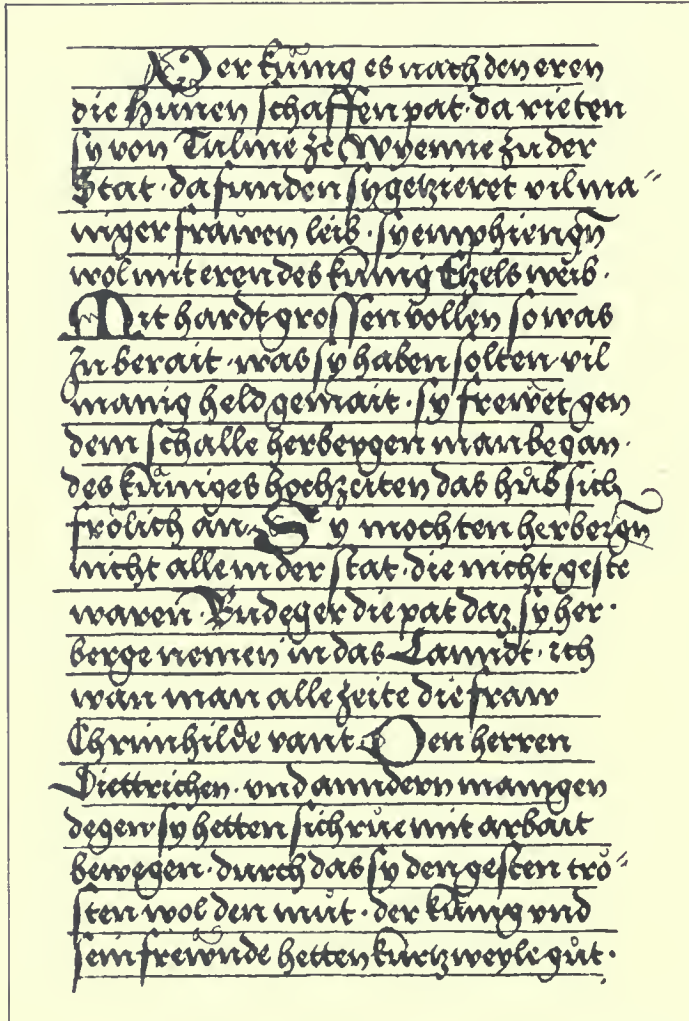 Der kůnig es nach den eren
die Hunen schaffen pat · da rieten
sy von Tulme ze Wyenne zu der
Stat · da funden sy getzieret vil ma〃
niger frawen leib · sy emphiengn̄
wol mit eren des kůnig Etzels weib ·
Mit hardt grossen vollen so was
zu berait · was sy haben solten · vil
manig held gemait · sy frewet gen
dem schalle herbergen man began ·
des kůniges hochzeiten das hůb sich
frölich an · Sy mochten herbergn̄
nicht alle in der stat · die nicht geste
waren · Rudeger die pat daz sy her ·
berge nemen in das Lanndt · ich
wän man alle zeite die fraw
Chrimhilde vant · Den herren
Diettrichen · vnd anndern manigen
degen sy hetten sich růe mit arbait
bewegen · durch das sy den gesten trö〃
sten wol den můt · der kůnig vnd
sein frewnde hetten kurtzweyle gůt ·